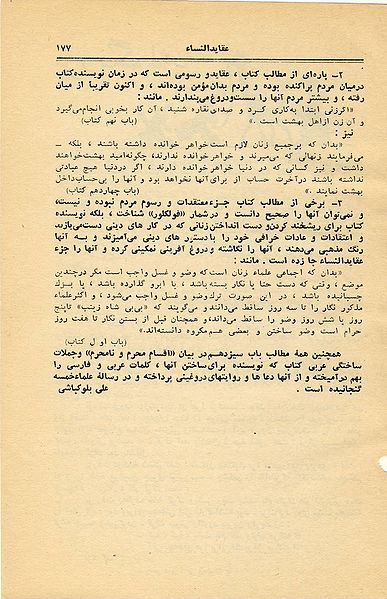 عقایدالنساء ۱۷۷
۲ــ پاره‌ای از مطالب کتاب ، عقایدو رسومی است که در زمان نویسنده‌کتاب
درمیان مردم پراکنده بوده و مردم بدان‌مؤمن بوده‌اند ، و اکنون تقریبا از میان
رفته ، و بیشتر مردم آنها را سست‌ودروغ‌می‌پندارند . مانند :
«اگرزنی ابتدا به‌کاری کرد و صدای‌نقاره شنید ، آن کار بخوبی انجام‌می‌گیرد
و آن زن ازاهل بهشت است .» (باب نهم کتاب)
نیز :
«بدان که برجمیع زنان لازم است‌خواهر خوانده داشته باشند ، بلکه
می‌فرمایند زنهائی که می‌میرند و خواهرخوانده ندارند، چگونه‌امید بهشت‌خواهند
داشت و نیز کسانی که در دنیا خواهر خوانده دارند ، اگر دردنیا هیچ عبادتی
نداشته باشند درآخرت حساب از برای‌آنها نخواهد بود و آنها را بی‌حساب‌داخل
بهشت نمایند .» (باب چهاردهم کتاب)
۳ــ برخی از مطالب کتاب جزءمعتقدات و رسوم مردم نبوده و نیست،
و نمی‌توان آنها را صحیح دانست و درشمار «فولکلور» شناخت ، بلکه نویسنده
کتاب برای ریشخند کردن‌و دست انداختن‌زنانی که در کار های دینی دست‌می‌یازید
و اعتقادات و عادات خرافی خود را با دستور های دینی می‌آمیزند و به آنها
رنگ مذهبی می‌دهند ، آنها را نگاشته ودروغ آفرینی نمکینی کرده و آنها را جزء
عقایدالنساء جا زده است . مانند :
«بدان که اجماعی علماء زنان است‌که وضو و غسل واجب است مگر درچندین
موضع ، وقتی که دست حنا یا نگار بسته باشد ، یا ابرو گذارده باشد ، یا
چسبانیده باشد ، در این صورت ترك‌وضو و غسل واجب می‌شود ، و اکثرعلماء
مذکور نگار را تا سه روز ساقط می‌دانندو می‌گویند که «بی‌بی شاه زینب» تاپنج
روز یا شش روز وضو را ساقط می‌داند،و همچنان قبل از بستن نگار تا هفت روز
حرام است وضو ساختن و بعضی هم‌مکروه دانسته‌اند.»
(باب اول کتاب)
همچنین همهٔ مطالب باب سیزدهم‌در بیان «اقسام محرم و نامحرم» وجملات
ساختگی عربی کتاب که نویسنده برای‌ساختن آنها ، کلمات عربی و فارسی را
بهم درآمیخته و از آنها دعا ها و روایتهای دروغینی پرداخته و در رسالهٔ علماءخمسه
گنجانیده است . علی بلوکباشی